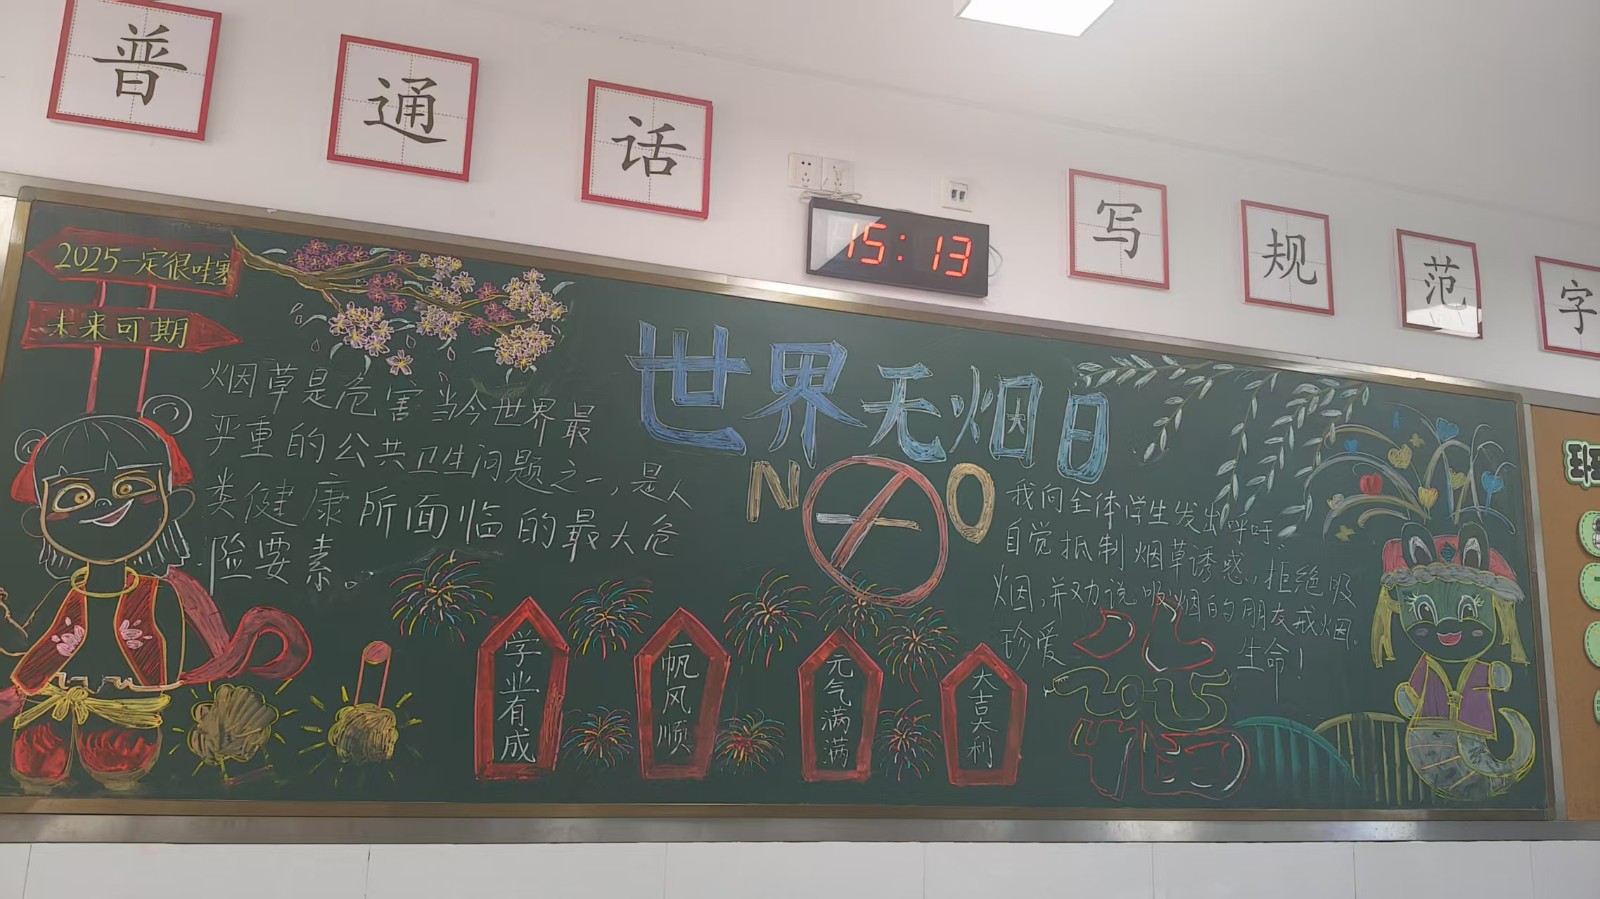 普通话
写规范字
15:13
2025一定很哇塞
未来可期
世界无烟日
NO
烟草是危害当今世界最
严重的公共卫生问题之一,是人
类健康所面临的最大危
险要素。
我向全体学生发出呼吁:
自觉抵制烟草诱惑,拒绝吸
烟,并劝说吸烟的朋友戒烟。
珍爱生命!
学业有成
一帆风顺
元气满满
大吉大利
2025
福
班